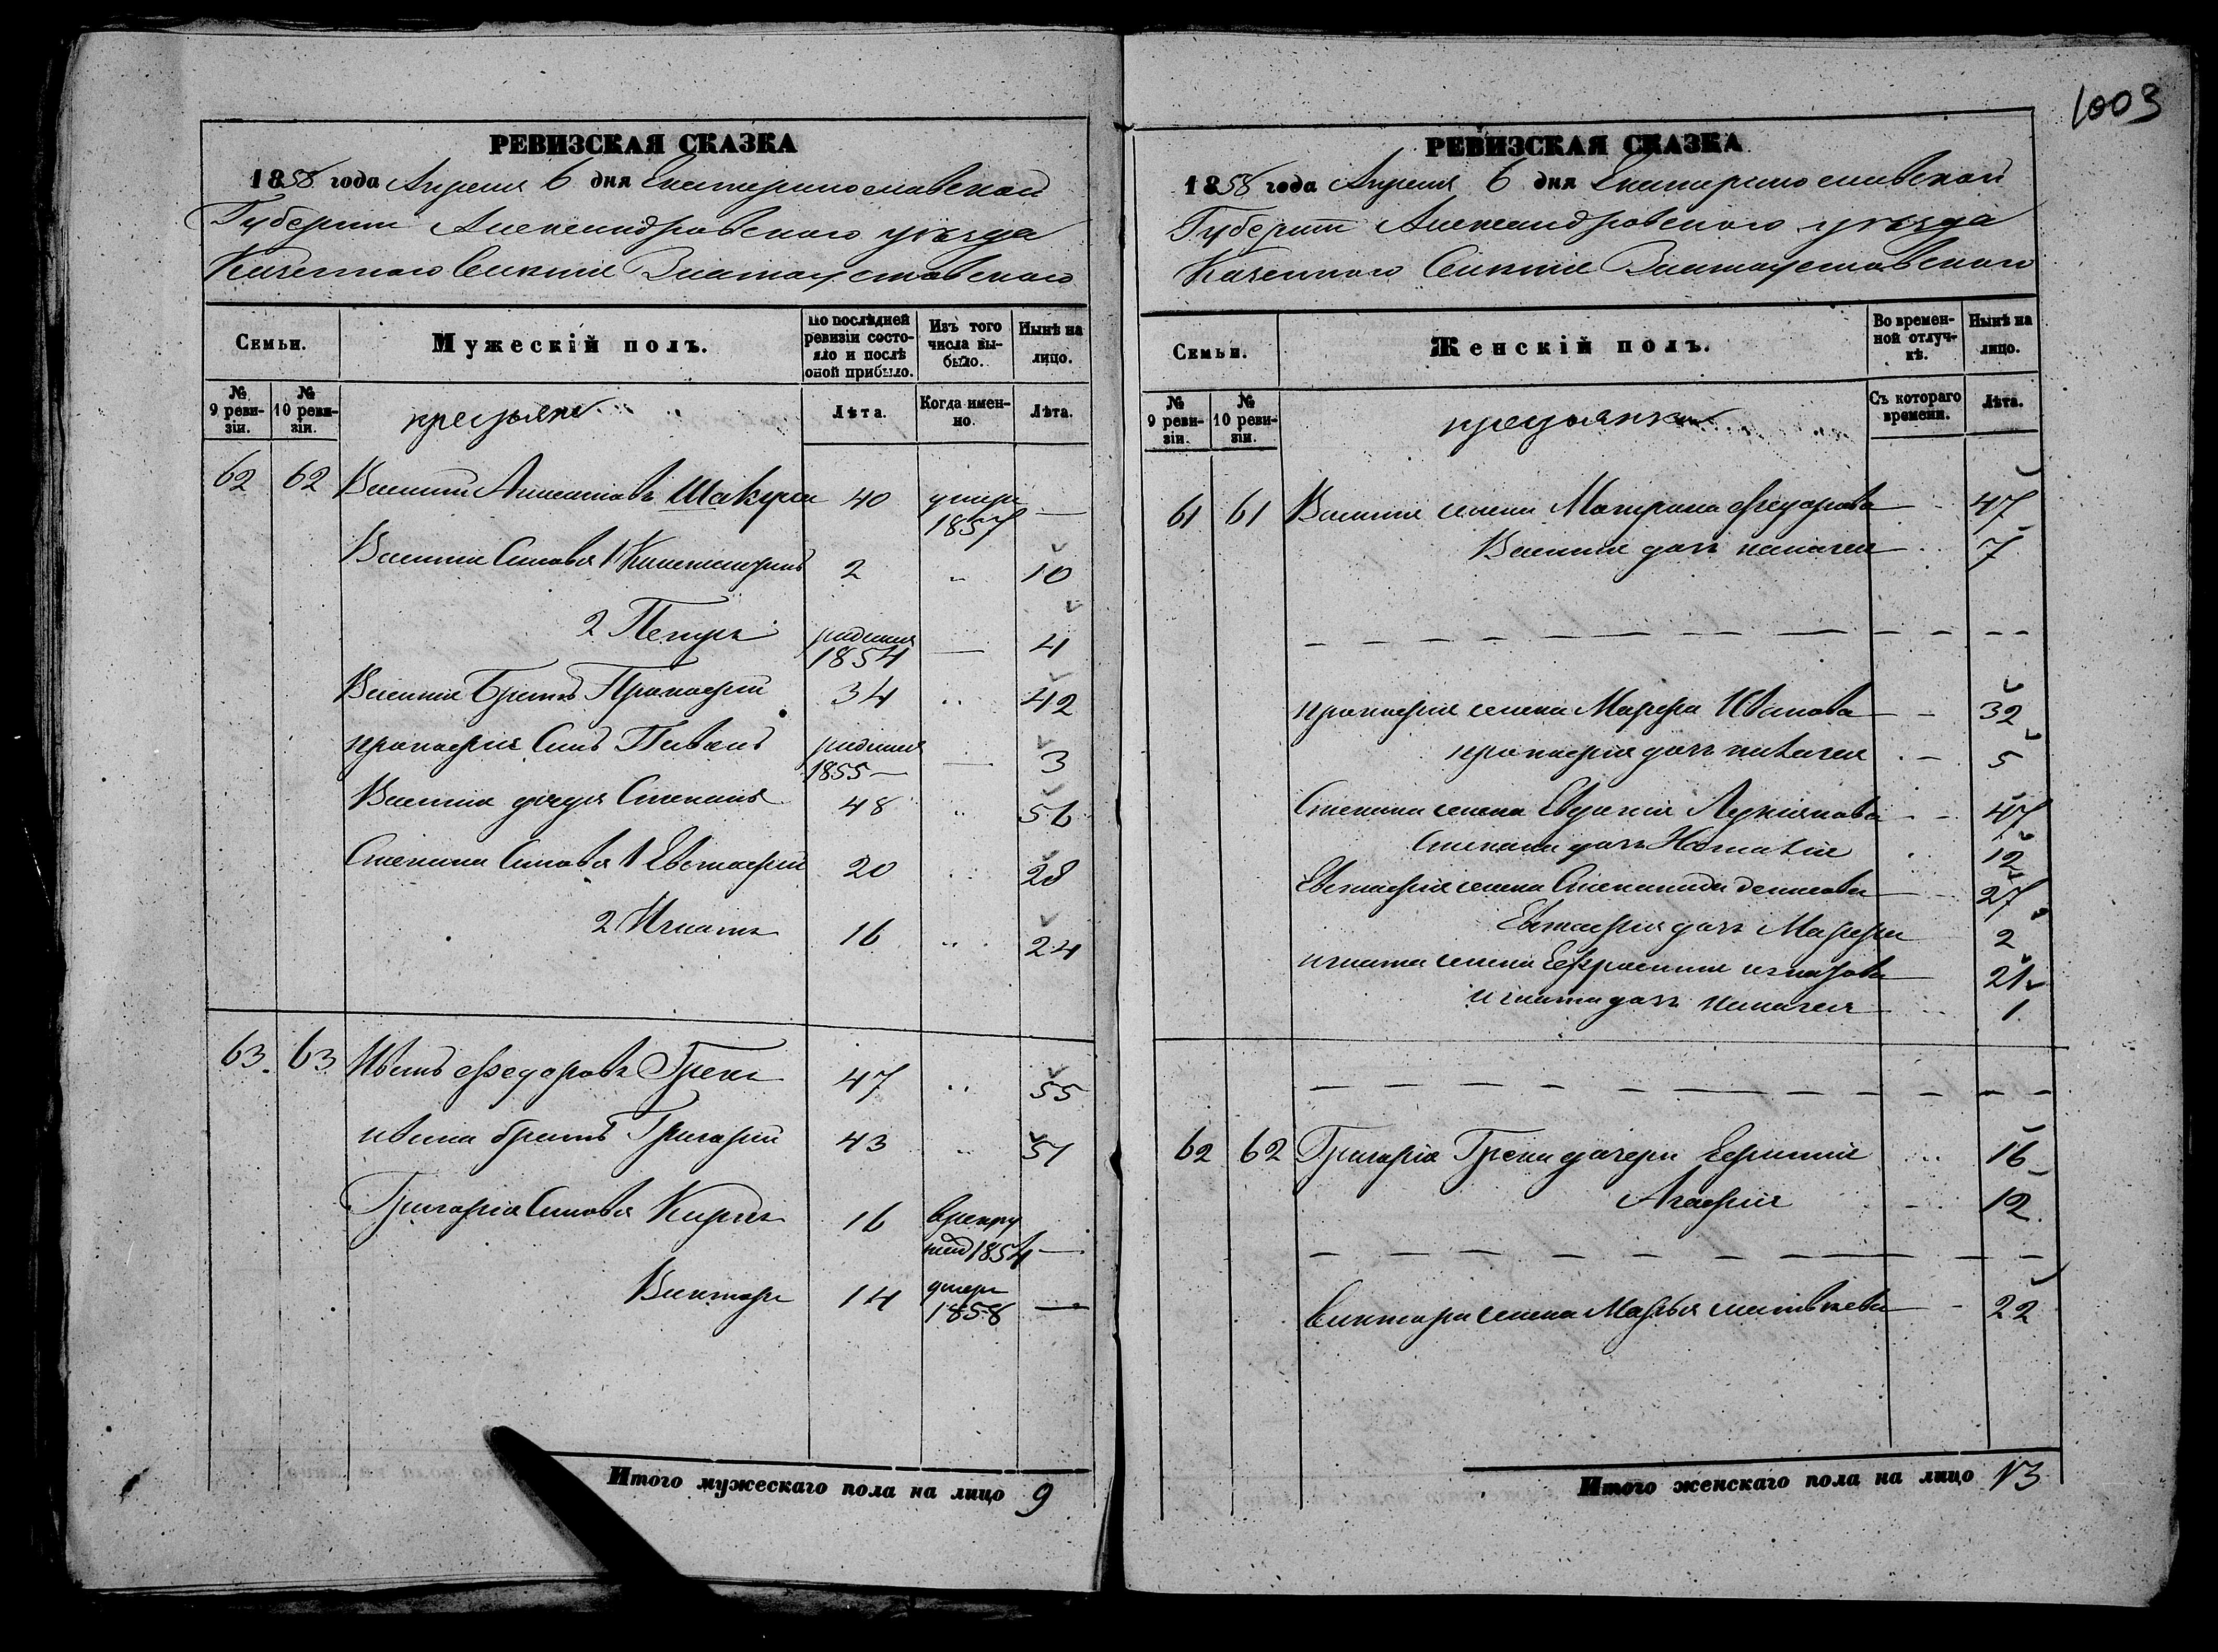 1003
РЕВИЗСКАЯ СКАЗКА
1858 года Апреля 6 дня Екатеринославской
Губернии Александровского уѣзда
Казенного Селенія Златоустовского
Семьи.
Мужескій полъ.
По послѣдней ревизіи состояло и послѣ оной прибыло.
Изъ того числа выбыло.
Нынѣ на лицо.
№ 9 ревизіи.
№ 10 ревизіи.
крестьяне
Лѣта.
Когда именно.
Лѣта.
62 62 Василий Шакура 40 умеръ 1857 —
Василия Сыновья 1 Константинъ 2 „ 10
2 Петръ родился 1854 — 4
Василия Братъ Прокофий 34 „ 42
Прокофия Сынъ Павелъ родился 1855 — — 3
Василия дядя Степанъ 48 „ 56
Степана Сыновья 1 Евстафий 20 „ 28
2 Игнатъ 16 „ 24
63. 63 Иванъ Федоровъ Грекъ 47 „ 55
Ивана братъ Григорий 43 „ 51
Григория Сыновья Кирилъ 16 1854 —
Викторъ 14 умеръ 1858 —
Итого мужескаго пола на лицо 9
РЕВИЗСКАЯ СКАЗКА
1858 года Апреля 6 дня Екатеринославской
Губернии Александровского уѣзда
Казенного Селенія Златоустовского
Семьи.
Женскій полъ.
Во временной отлучкѣ.
Нынѣ на лицо.
№ 9 ревизіи.
№ 10 ревизіи.
Съ котораго времени.
Лѣта.
61 61 Василия жена Матрона Федорова 47
Василия дочь Пелагея 7
Прокофия жена Марфа Иванова 32
Прокофия дочь Пелагея 5
Степана жена Евдокия Лукьянова 47
Степана дочь Наталия 12
Евстафия жена Степанида Денисова 27
Евстафия дочь Марфа 2
Игната жена Ефросиния 21
Игната дочь Пелагея 1
62 62 Григория Грека дочери 16
Агафия 12
Виктора жена Марья 22
Итого женскаго пола на лицо 13